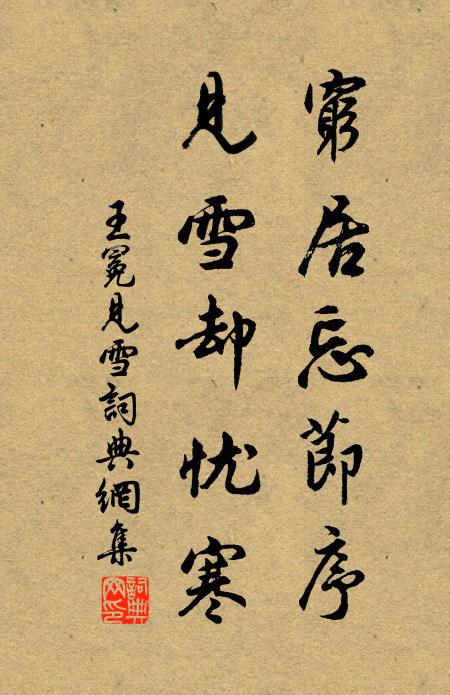 窮居忘節序
見雪却忧寒
王冕見雪詞典網集
詞典网印